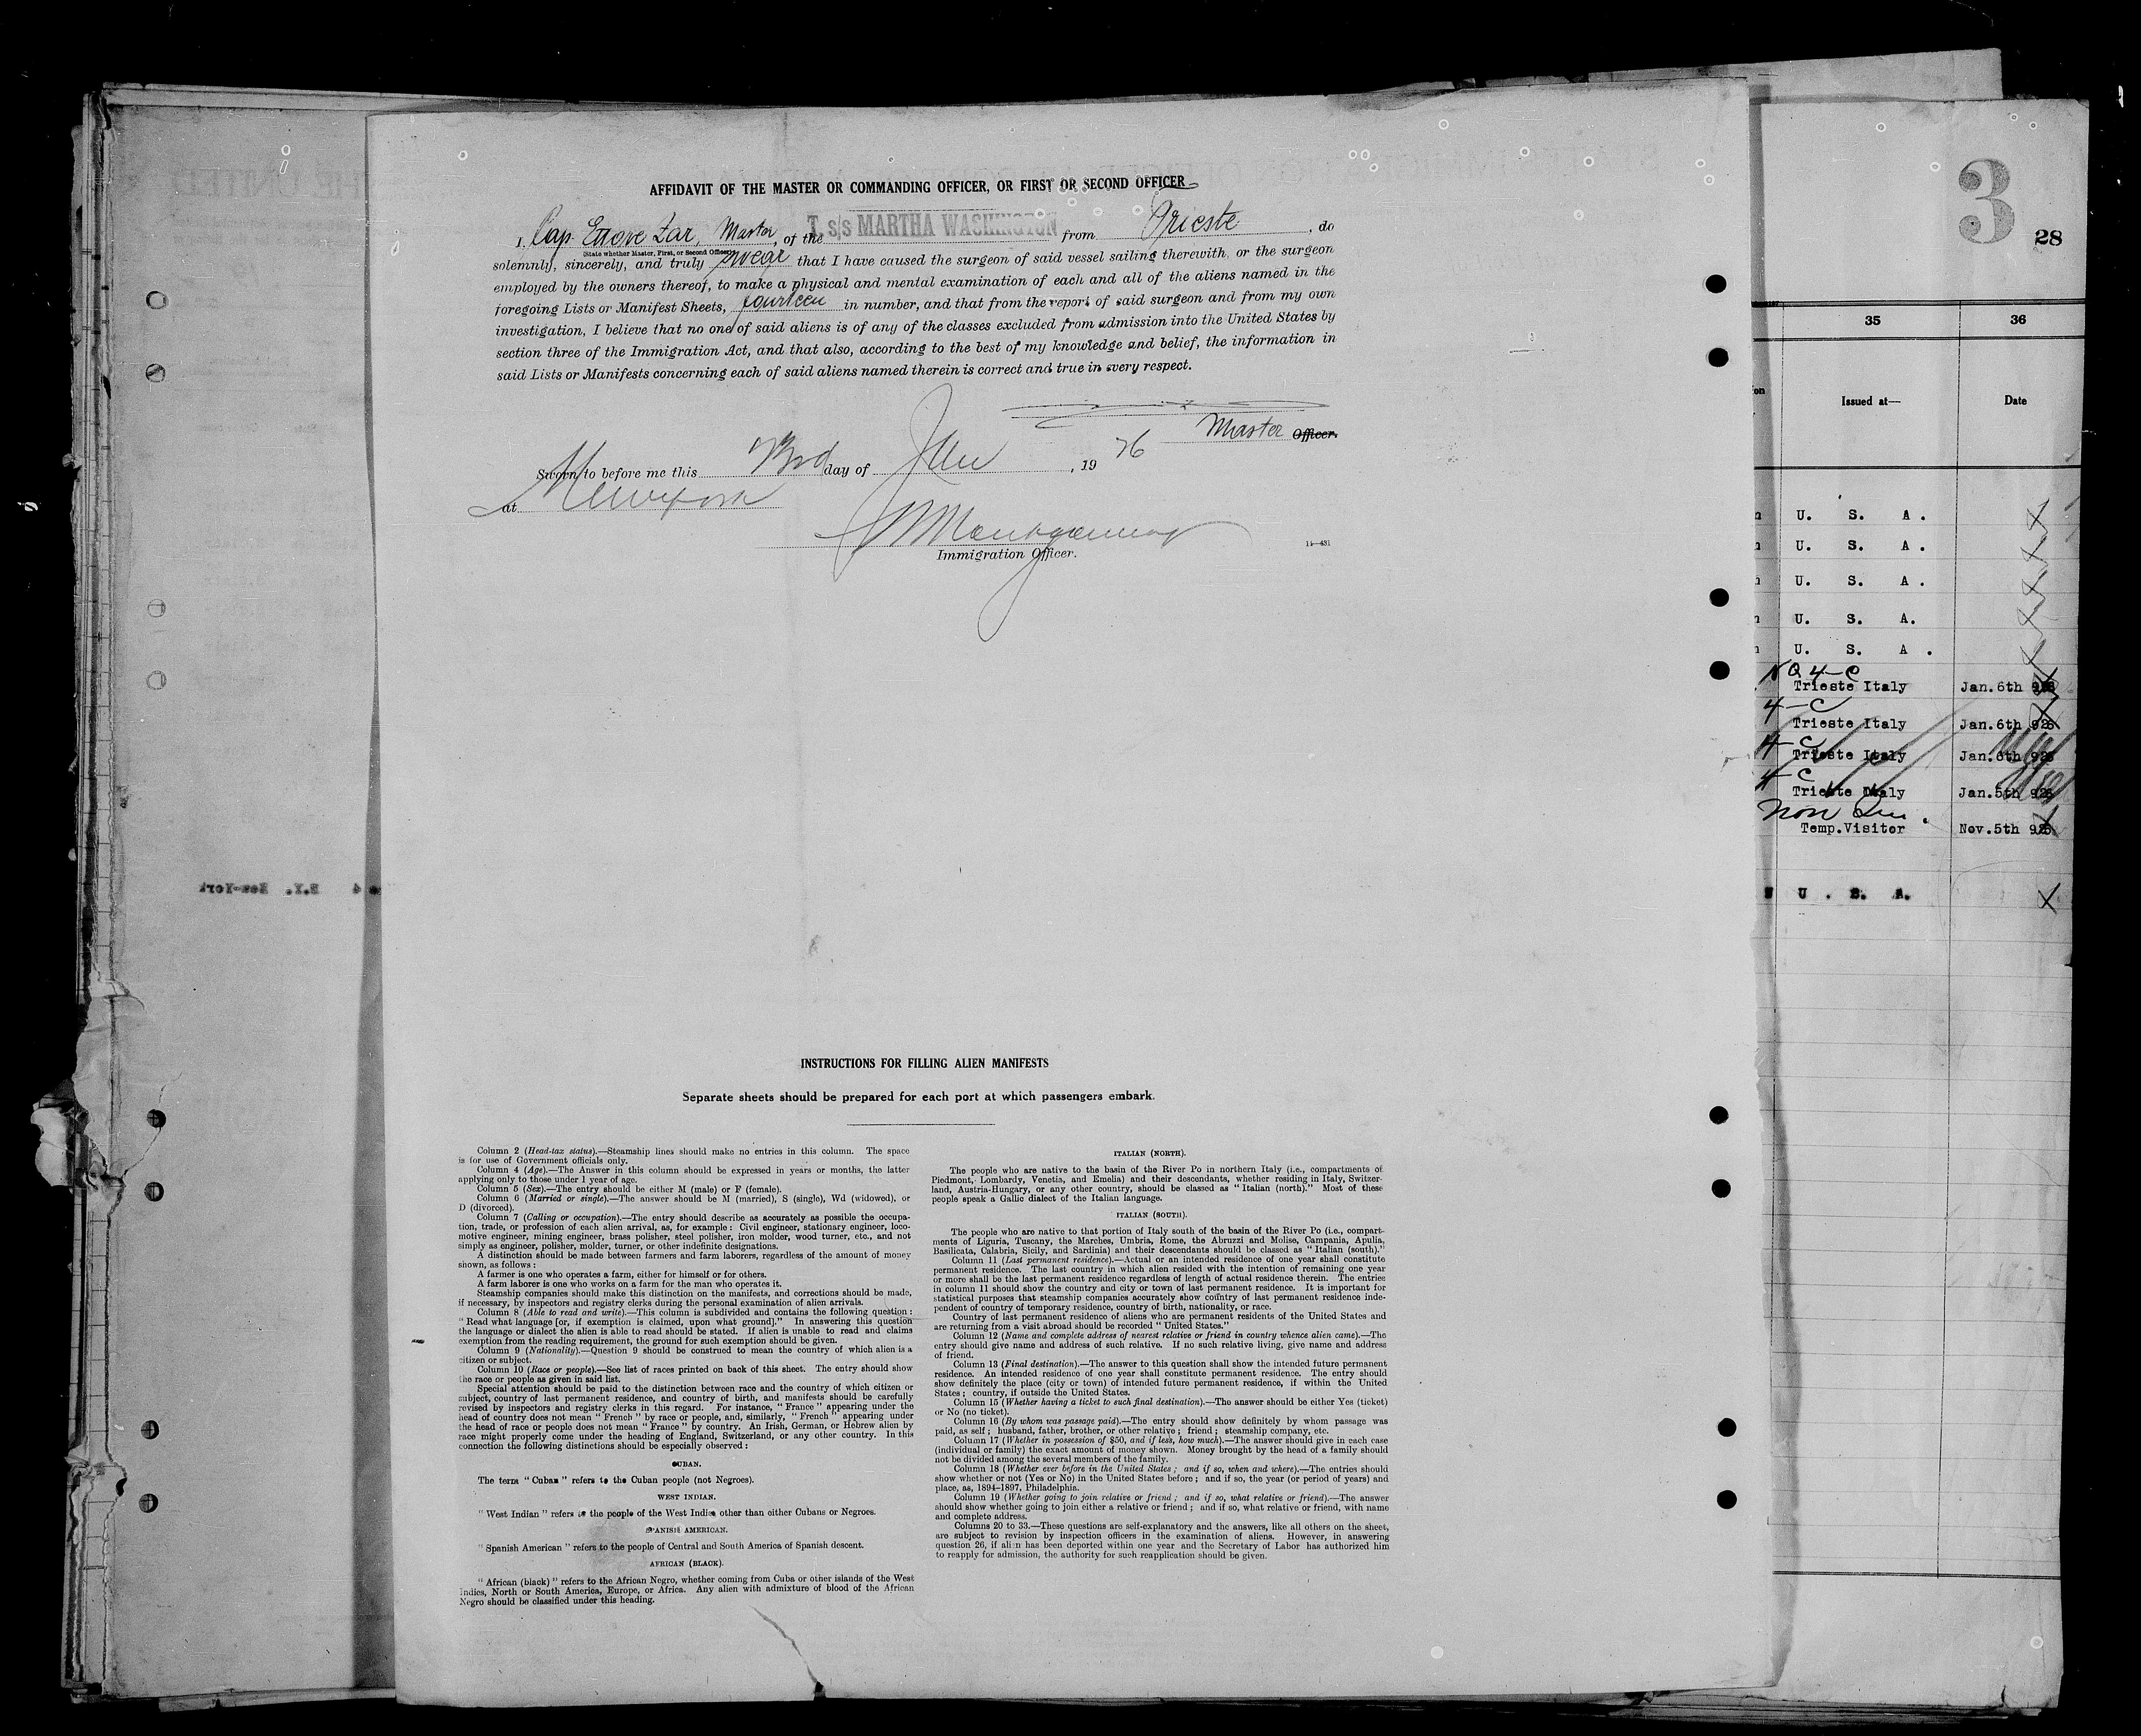 AFFIDAVIT OF THE MASTER OR COMMANDING OFFICER, OR FIRST OR SECOND OFFICER
I, Cap. Ettore Zar, Master, of the T. s/s MARTHA WASHINGTON from Trieste, do
(State whether Master, First, or Second Officer)
solemnly, sincerely, and truly swear that I have caused the surgeon of said vessel sailing therewith, or the surgeon
employed by the owners thereof, to make a physical and mental examination of each and all of the aliens named in the
foregoing Lists or Manifest Sheets, fourteen in number, and that from the report of said surgeon and from my own
investigation, I believe that no one of said aliens is of any of the classes excluded from admission into the United States by
section three of the Immigration Act, and that also, according to the best of my knowledge and belief, the information in
said Lists or Manifests concerning each of said aliens named therein is correct and true in every respect.
Master Officer.
Sworn to before me this day of , 19 26
at New York
Montgomery
Immigration Officer.
INSTRUCTIONS FOR FILLING ALIEN MANIFESTS
Separate sheets should be prepared for each port at which passengers embark.
Column 2 (Head-tax status).—Steamship lines should make no entries in this column. The space
is for use of Government officials only.
Column 4 (Age).—The Answer in this column should be expressed in years or months, the latter
applying only to those under 1 year of age.
Column 5 (Sex).—The entry should be either M (male) or F (female).
Column 6 (Married or single).—The answer should be M (married), S (single), Wd (widowed), or
D (divorced).
Column 7 (Calling or occupation).—The entry should describe as accurately as possible the occupa-
tion, trade, or profession of each alien arrival, as, for example: Civil engineer, stationary engineer, loco-
motive engineer, mining engineer, brass polisher, steel polisher, iron molder, wood turner, etc., and not
simply as engineer, polisher, molder, turner, or other indefinite designations.
A distinction should be made between farmers and farm laborers, regardless of the amount of money
shown, as follows:
A farmer is one who operates a farm, either for himself or for others.
A farm laborer is one who works on a farm for the man who operates it.
Steamship companies should make this distinction on the manifests, and corrections should be made,
if necessary, by inspectors and registry clerks during the personal examination of alien arrivals.
Column 8 (Able to read and write).—This column is subdivided and contains the following question:
"Read what language [or, if exemption is claimed, upon what ground]." In answering this question
the language or dialect the alien is able to read should be stated. If alien is unable to read and claims
exemption from the reading requirement, the ground for such exemption should be given.
Column 9 (Nationality).—Question 9 should be construed to mean the country of which alien is a
citizen or subject.
Column 10 (Race or people).—See list of races printed on back of this sheet. The entry should show
the race or people as given in said list.
Special attention should be paid to the distinction between race and the country of which citizen or
subject, country of last permanent residence, and country of birth, and manifests should be carefully
revised by inspectors and registry clerks in this regard. For instance, "France" appearing under the
head of country does not mean "French" by race or people, and, similarly, "French" appearing under
the head of race or people does not mean "France" by country. An Irish, German, or Hebrew alien by
race might properly come under the heading of England, Switzerland, or any other country. In this
connection the following distinctions should be especially observed:
CUBAN.
The term "Cuban" refers to the Cuban people (not Negroes).
WEST INDIAN.
"West Indian" refers to the people of the West Indies other than either Cubans or Negroes.
SPANISH AMERICAN.
"Spanish American" refers to the people of Central and South America of Spanish descent.
AFRICAN (BLACK).
"African (black)" refers to the African Negro, whether coming from Cuba or other islands of the West
Indies, North or South America, Europe, or Africa. Any alien with admixture of blood of the African
Negro should be classified under this heading.
ITALIAN (NORTH).
The people who are native to the basin of the River Po in northern Italy (i.e., compartments of
Piedmont, Lombardy, Venetia, and Emelia) and their descendants, whether residing in Italy, Switzer-
land, Austria-Hungary, or any other country, should be classed as "Italian (north)." Most of these
people speak a Gallic dialect of the Italian language.
ITALIAN (SOUTH).
The people who are native to that portion of Italy south of the basin of the River Po (i.e., compart-
ments of Liguria, Tuscany, the Marches, Umbria, Rome, the Abruzzi and Molise, Campania, Apulia,
Basilicata, Calabria, Sicily, and Sardinia) and their descendants should be classed as "Italian (south)."
Column 11 (Last permanent residence).—Actual or an intended residence of one year shall constitute
permanent residence. The last country in which alien resided with the intention of remaining one year
or more shall be the last permanent residence regardless of length of actual residence therein. The entries
in column 11 should show the country and city or town of last permanent residence. It is important for
statistical purposes that steamship companies accurately show country of last permanent residence inde-
pendent of country of temporary residence, country of birth, nationality, or race.
Country of last permanent residence of aliens who are permanent residents of the United States and
are returning from a visit abroad should be recorded "United States."
Column 12 (Name and complete address of nearest relative or friend in country whence alien came).—The
entry should give name and address of such relative. If no such relative living, give name and address
of friend.
Column 13 (Final destination).—The answer to this question shall show the intended future permanent
residence. An intended residence of one year shall constitute permanent residence. The entry should
show definitely the place (city or town) of intended future permanent residence, if within the United
States; country, if outside the United States.
Column 15 (Whether having a ticket to such final destination).—The answer should be either Yes (ticket)
or No (no ticket).
Column 16 (By whom was passage paid).—The entry should show definitely by whom passage was
paid, as self; husband, father, brother, or other relative; friend; steamship company, etc.
Column 17 (Whether in possession of $50, and if less, how much).—The answer should give in each case
(individual or family) the exact amount of money shown. Money brought by the head of a family should
not be divided among the several members of the family.
Column 18 (Whether ever before in the United States; and if so, when and where).—The entries should
show whether or not (Yes or No) in the United States before; and if so, the year (or period of years) and
place, as, 1894–1897, Philadelphia.
Column 19 (Whether going to join relative or friend; and if so, what relative or friend).—The answer
should show whether going to join either a relative or friend; and if so, what relative or friend, with name
and complete address.
Columns 20 to 33.—These questions are self-explanatory and the answers, like all others on the sheet,
are subject to revision by inspection officers in the examination of aliens. However, in answering
question 26, if alien has been deported within one year and the Secretary of Labor has authorized him
to reapply for admission, the authority for such reapplication should be given.
3
28
35 36
Issued at— Date
U. S. A.
U. S. A.
U. S. A.
U. S. A.
U. S. A.
N Q 4-C
Trieste Italy Jan. 6th
4-C
Trieste Italy Jan. 6th 926
4-C
Trieste Italy Jan. 6th 926
4-C
Trieste Italy Jan. 5th 926
Non
Temp. Visitor Nov. 5th 925
U. S. A.